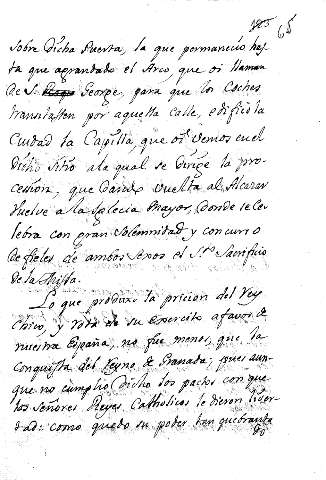 65
sobre Dicha Puerta, la que permanecio has-
ta que agrandado el Arco, que oi llaman
de S. George, para que los Coches
transitassen por aquella calle, edifico la
Ciudad la Capilla, que oi vemos en el
Dicho Sitio a la qual se dirige la pro-
cession, que dando vuelta al Alcazar
vuelve a la Iglecia Mayor, donde se ce-
lebra con gran solemnidad y concurso
de fieles de ambos sexos el S.to Sacrificio
de la Missa.
Lo que produxo la pricion del Rey
Chico, y rota de su exercito a favor de
nuestra España, no fue menos, que la
conquista del Reyno de Granada; pues aun-
que no cumplio dicho los pactos con que
los Señores Reyes Catholicos le dieron liber-
tad: como quedo su poder tan quebranta
do